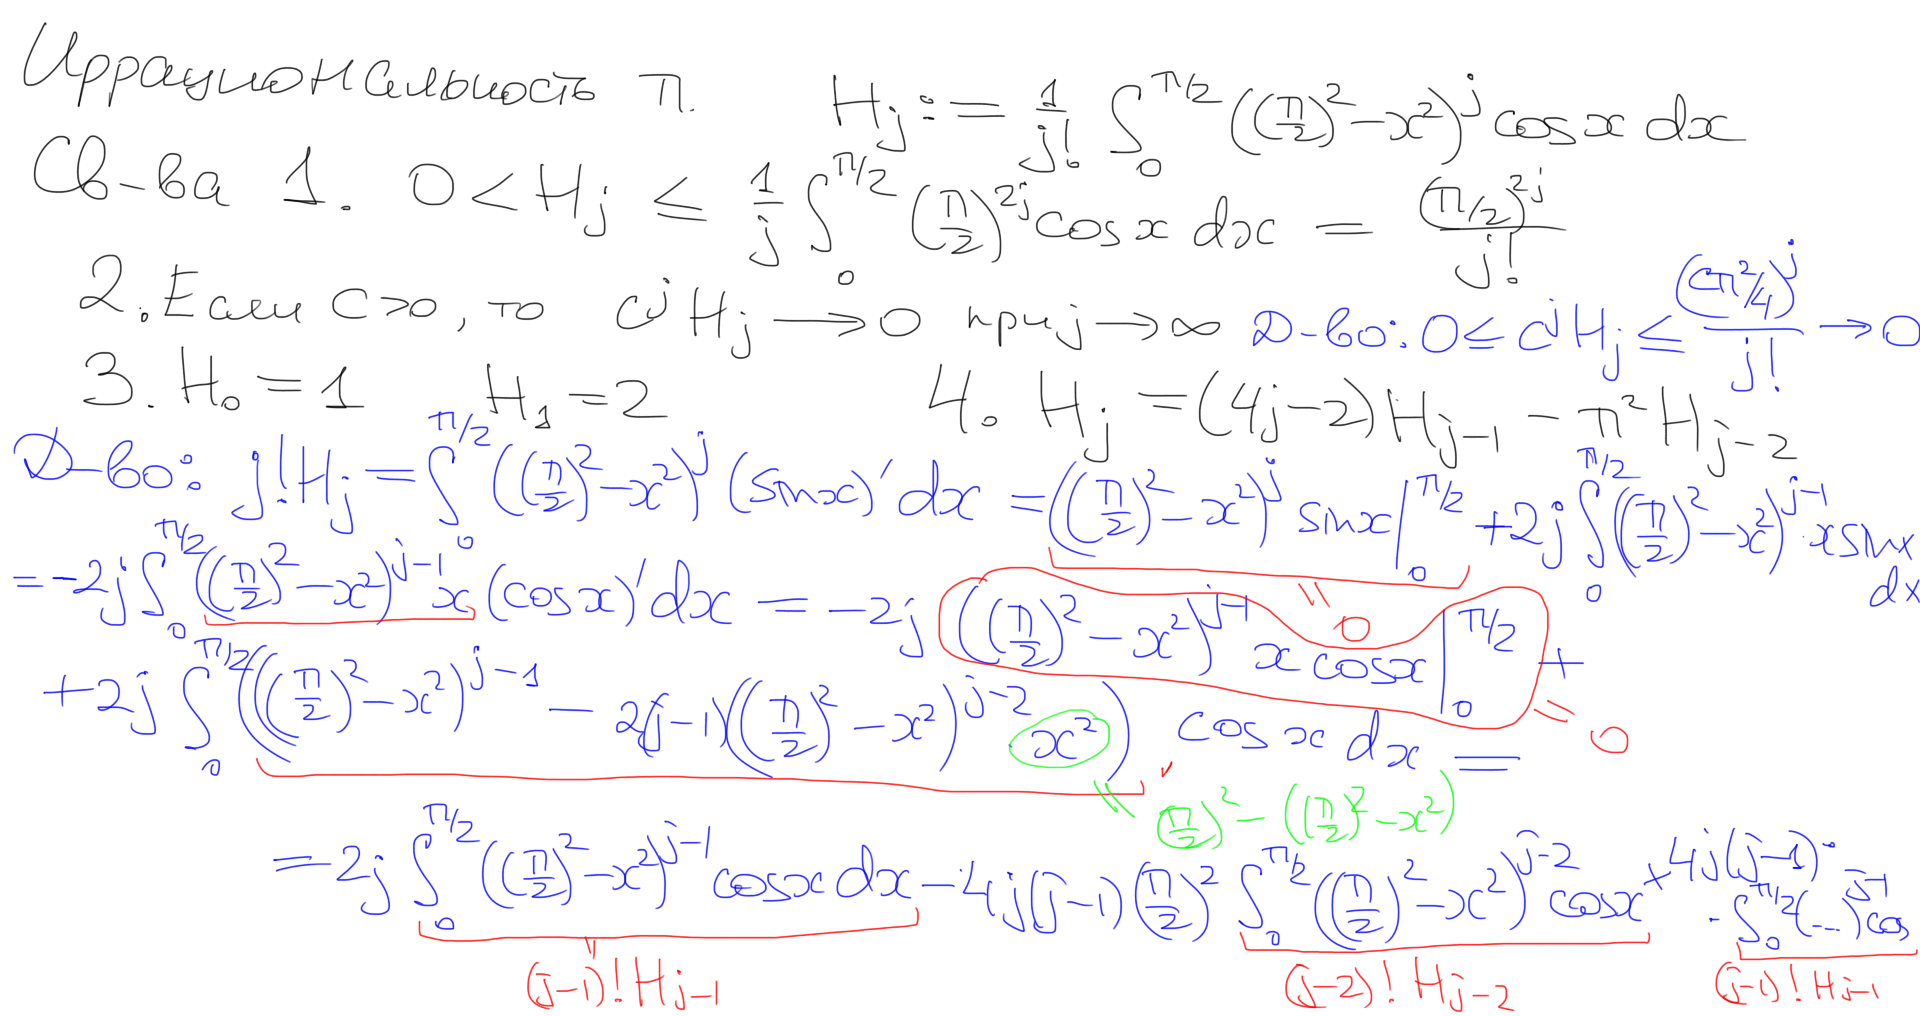 Иррациональность π. H_j := 1/j! ∫_0^{π/2} ((π/2)^2 − x^2)^j cos x dx
Св-ва 1. 0 < H_j ≤ 1/j ∫_0^{π/2} (π/2)^{2j} cos x dx = (π/2)^{2j}/j!
2. Если c>0, то c^j H_j → 0 при j → ∞ Д-во: 0 ≤ c^j H_j ≤ (cπ^2/4)^j/j! → 0
3. H_0 = 1 H_1 = 2 4. H_j = (4j−2)H_{j−1} − π^2 H_{j−2}
Д-во: j! H_j = ∫_0^{π/2} ((π/2)^2 − x^2)^j (sin x)' dx = ((π/2)^2 − x^2)^j sin x |_0^{π/2} + 2j ∫_0^{π/2} ((π/2)^2 − x^2)^{j−1} · x sin x dx
" 0
= −2j ∫_0^{π/2} ((π/2)^2 − x^2)^{j−1} x (cos x)' dx = −2j ((π/2)^2 − x^2)^{j−1} x cos x |_0^{π/2} +
= 0
+ 2j ∫_0^{π/2} (((π/2)^2 − x^2)^{j−1} − 2(j−1)((π/2)^2 − x^2)^{j−2} · x^2) cos x dx =
" (π/2)^2 − ((π/2)^2 − x^2)
= 2j ∫_0^{π/2} ((π/2)^2 − x^2)^{j−1} cos x dx − 4j(j−1)(π/2)^2 ∫_0^{π/2} ((π/2)^2 − x^2)^{j−2} cos x + 4j(j−1) ·
· ∫_0^{π/2} (...)^{j−1} cos
" (j−1)! H_{j−1} (j−2)! H_{j−2} (j−1)! H_{j−1}